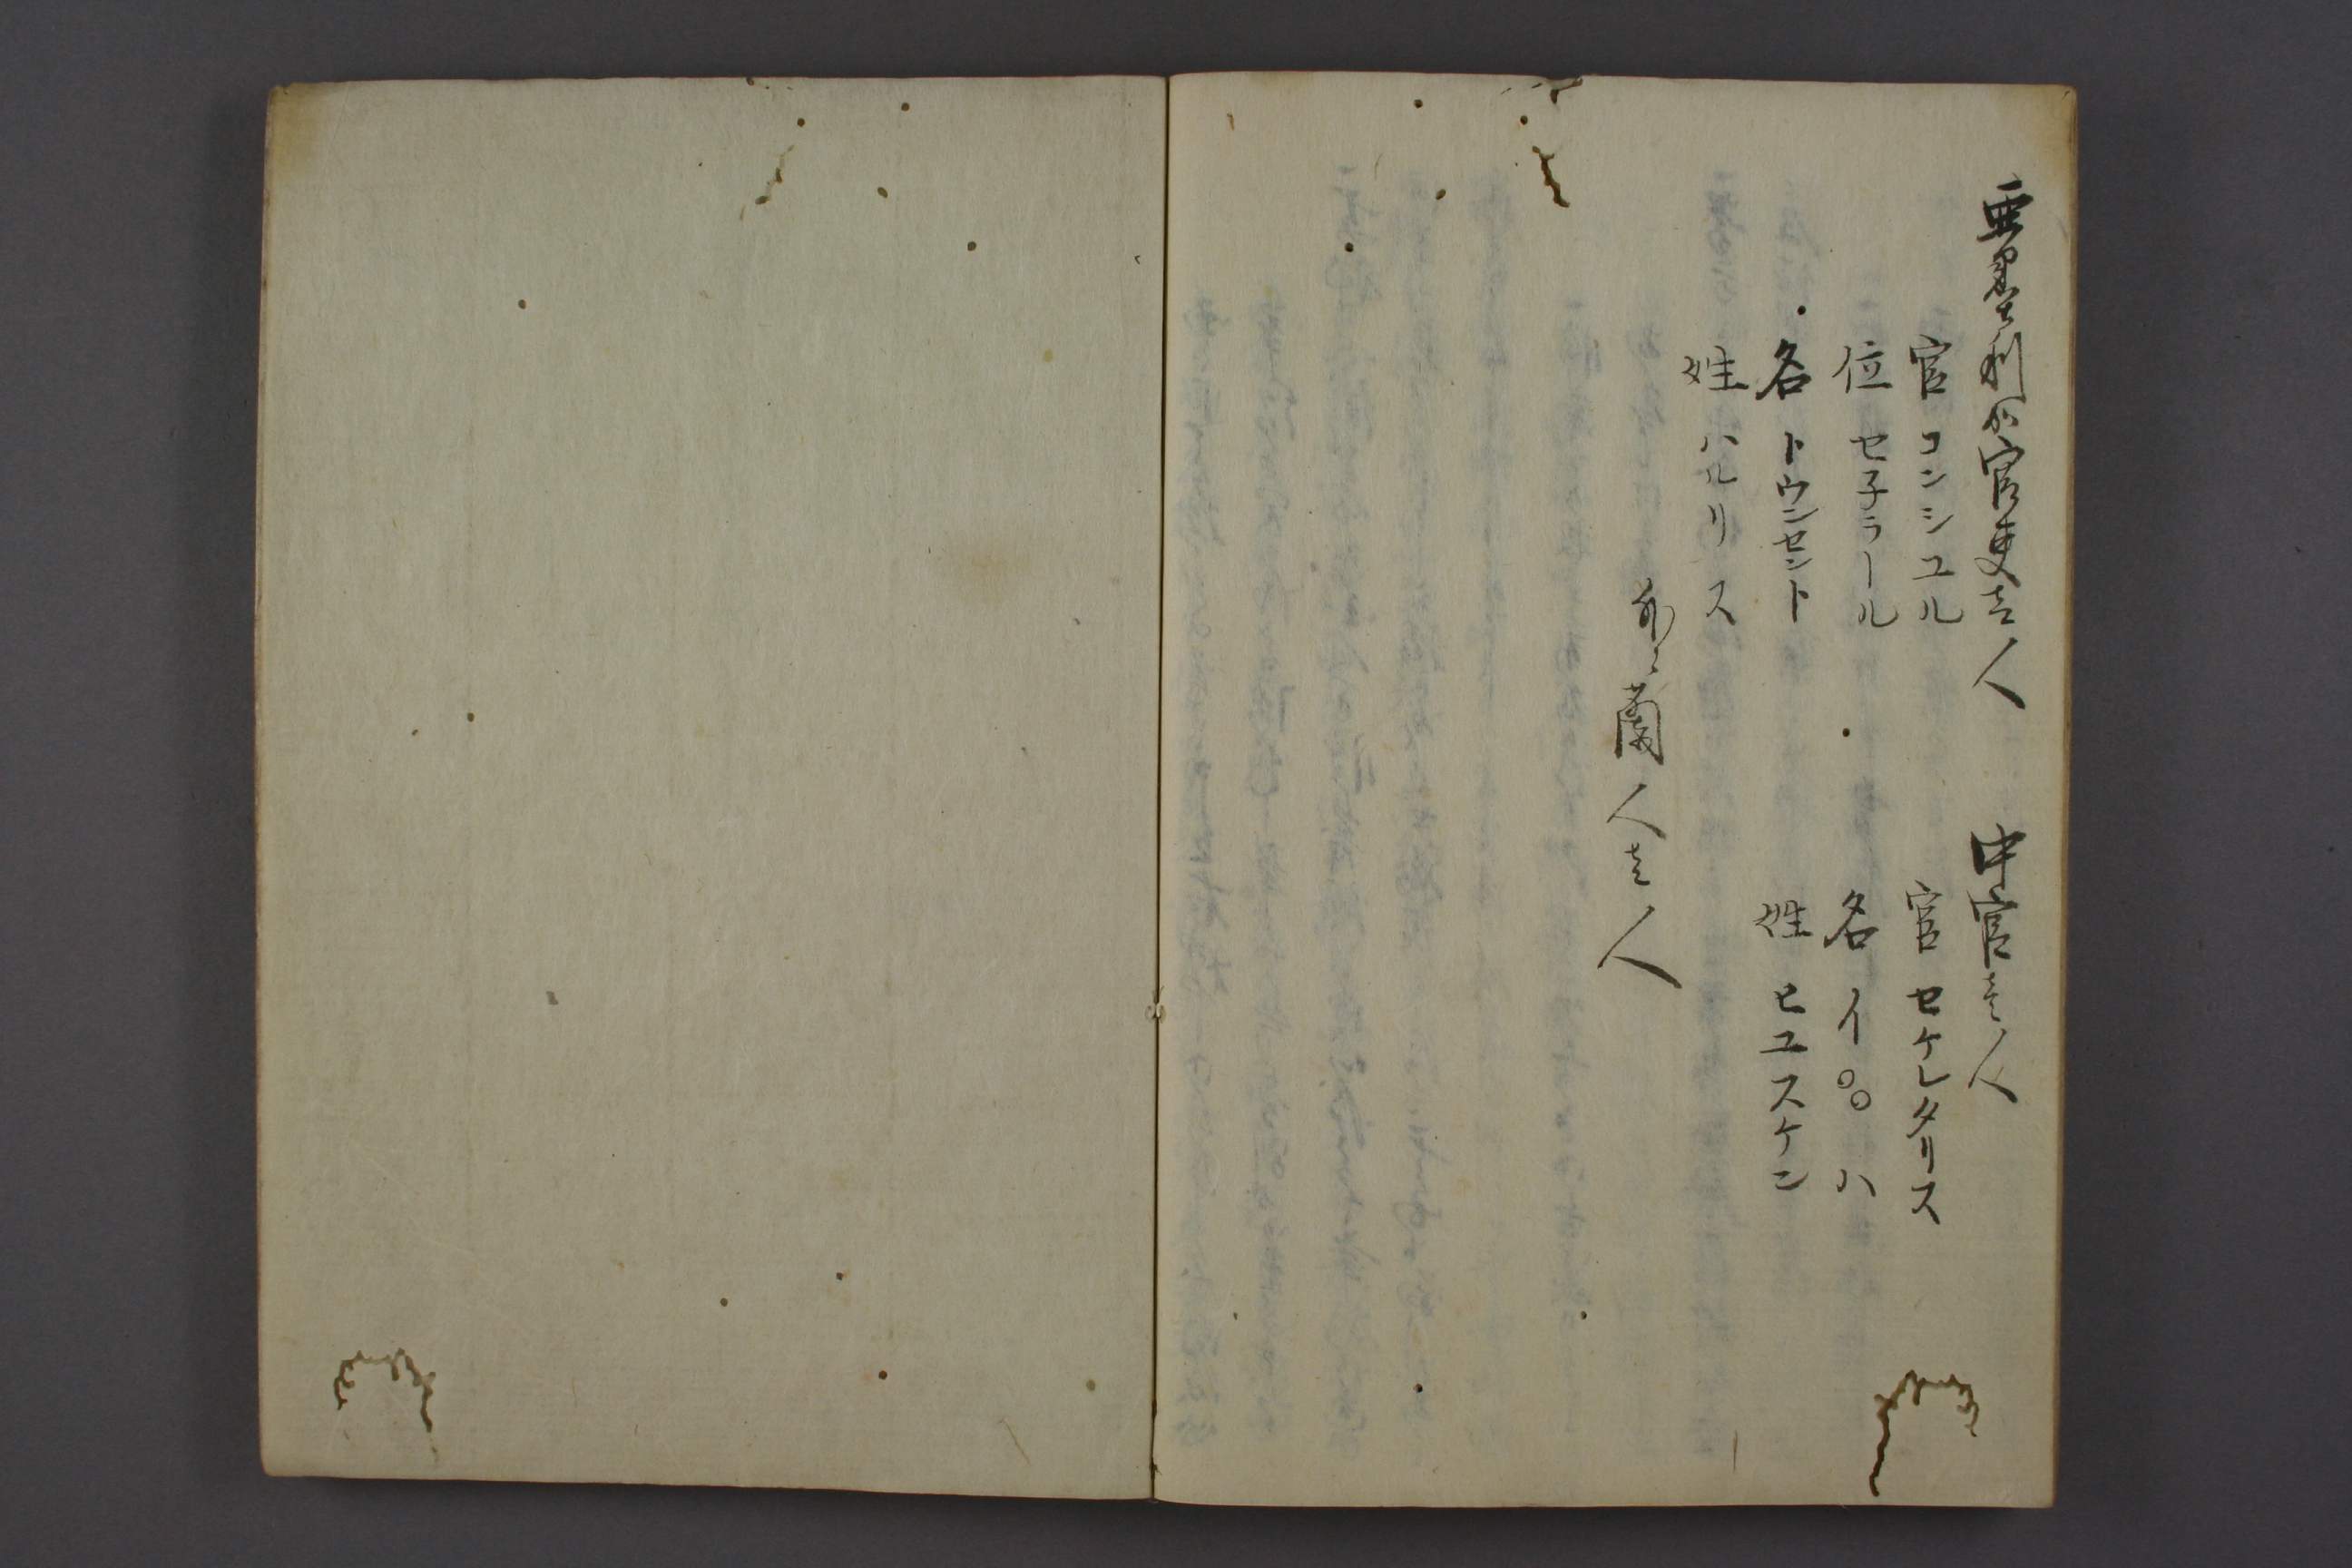 亜墨利加官吏壱人
官 コンシユル
位 セ子ラール
名 トウンセント
姓 ハルリス
中官壱人
官 セケレタリス
名 イ○○ハ
姓 ヒユスケン
外ニ蘭人壱人